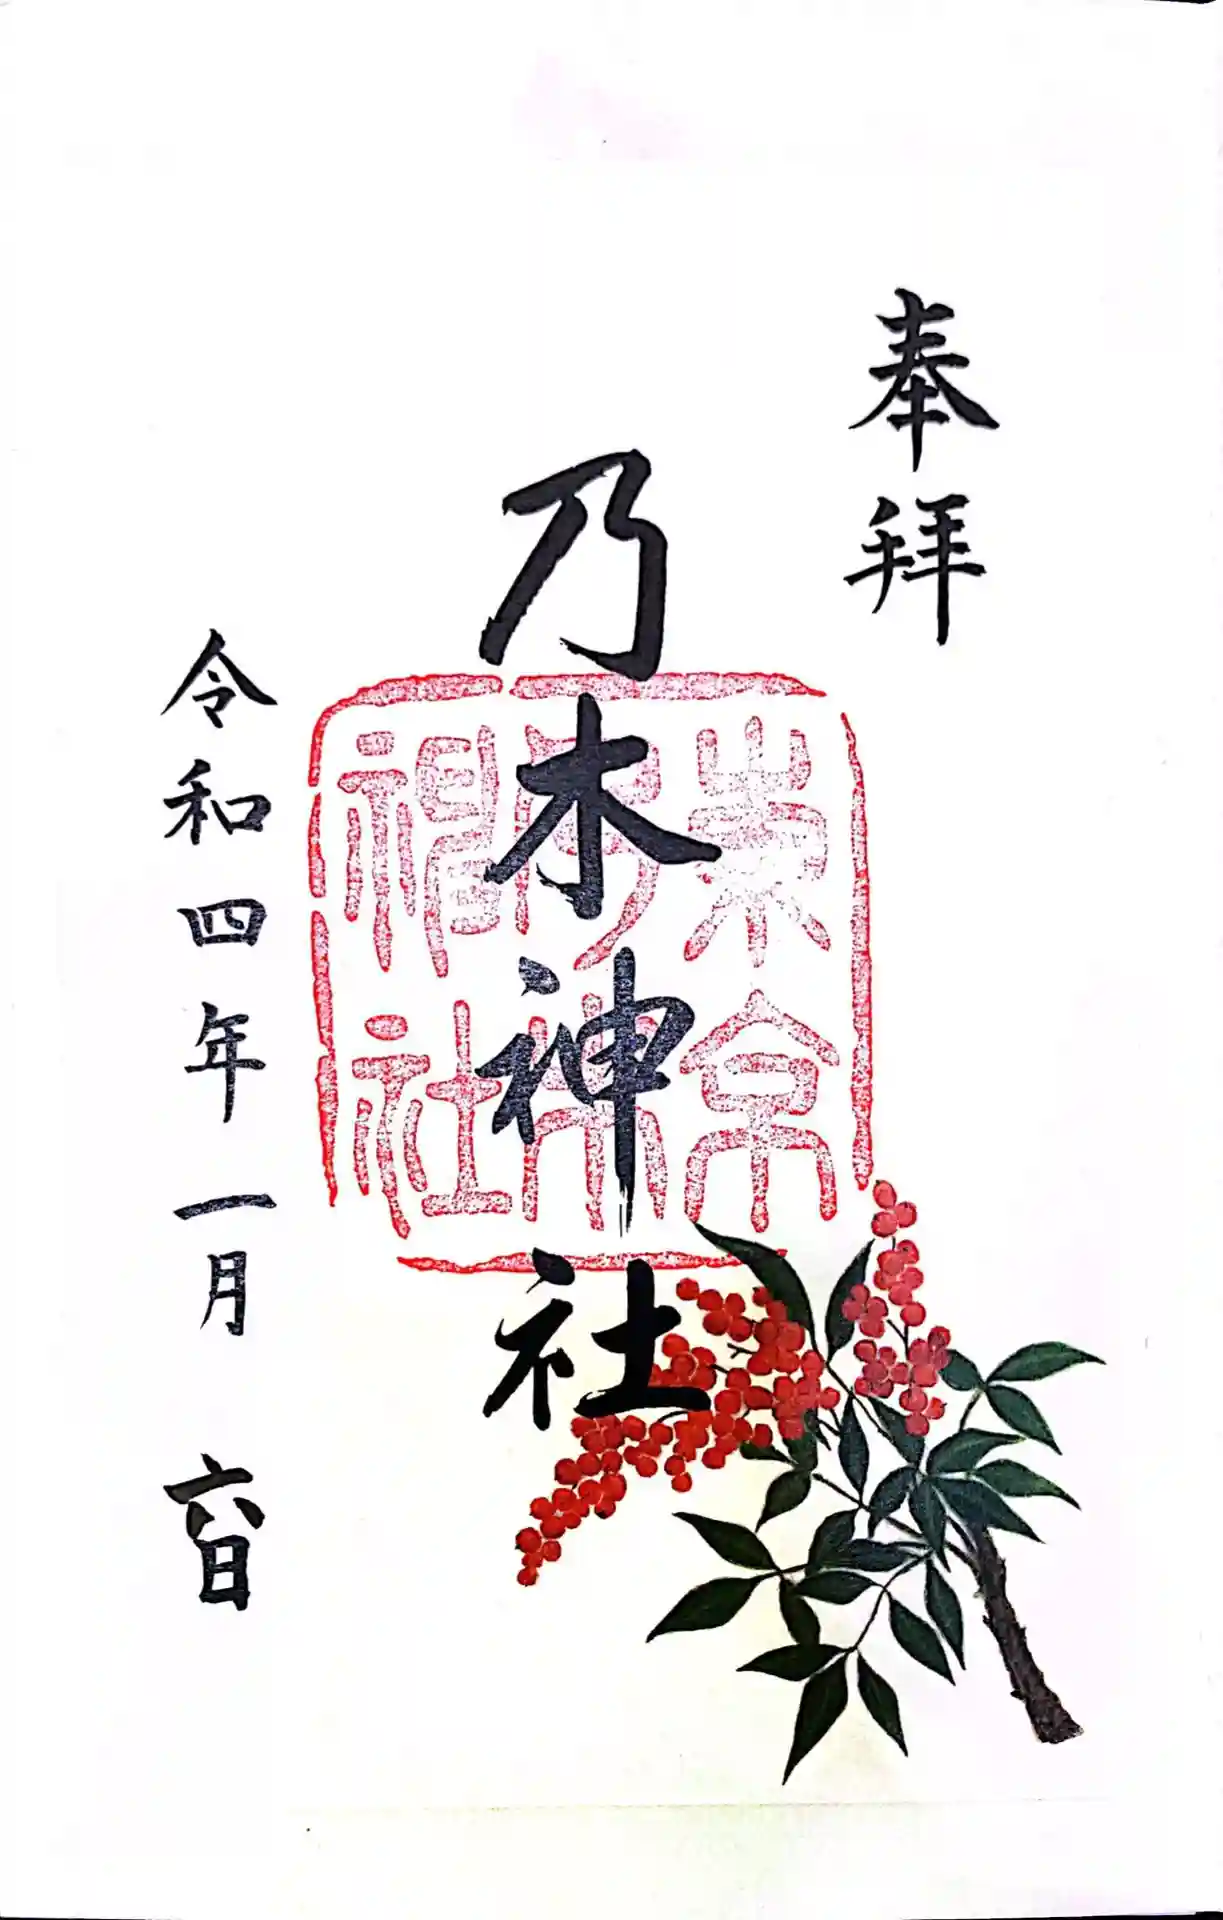 奉拝
乃木神社
令和四年一月六日
東京
乃木
神社